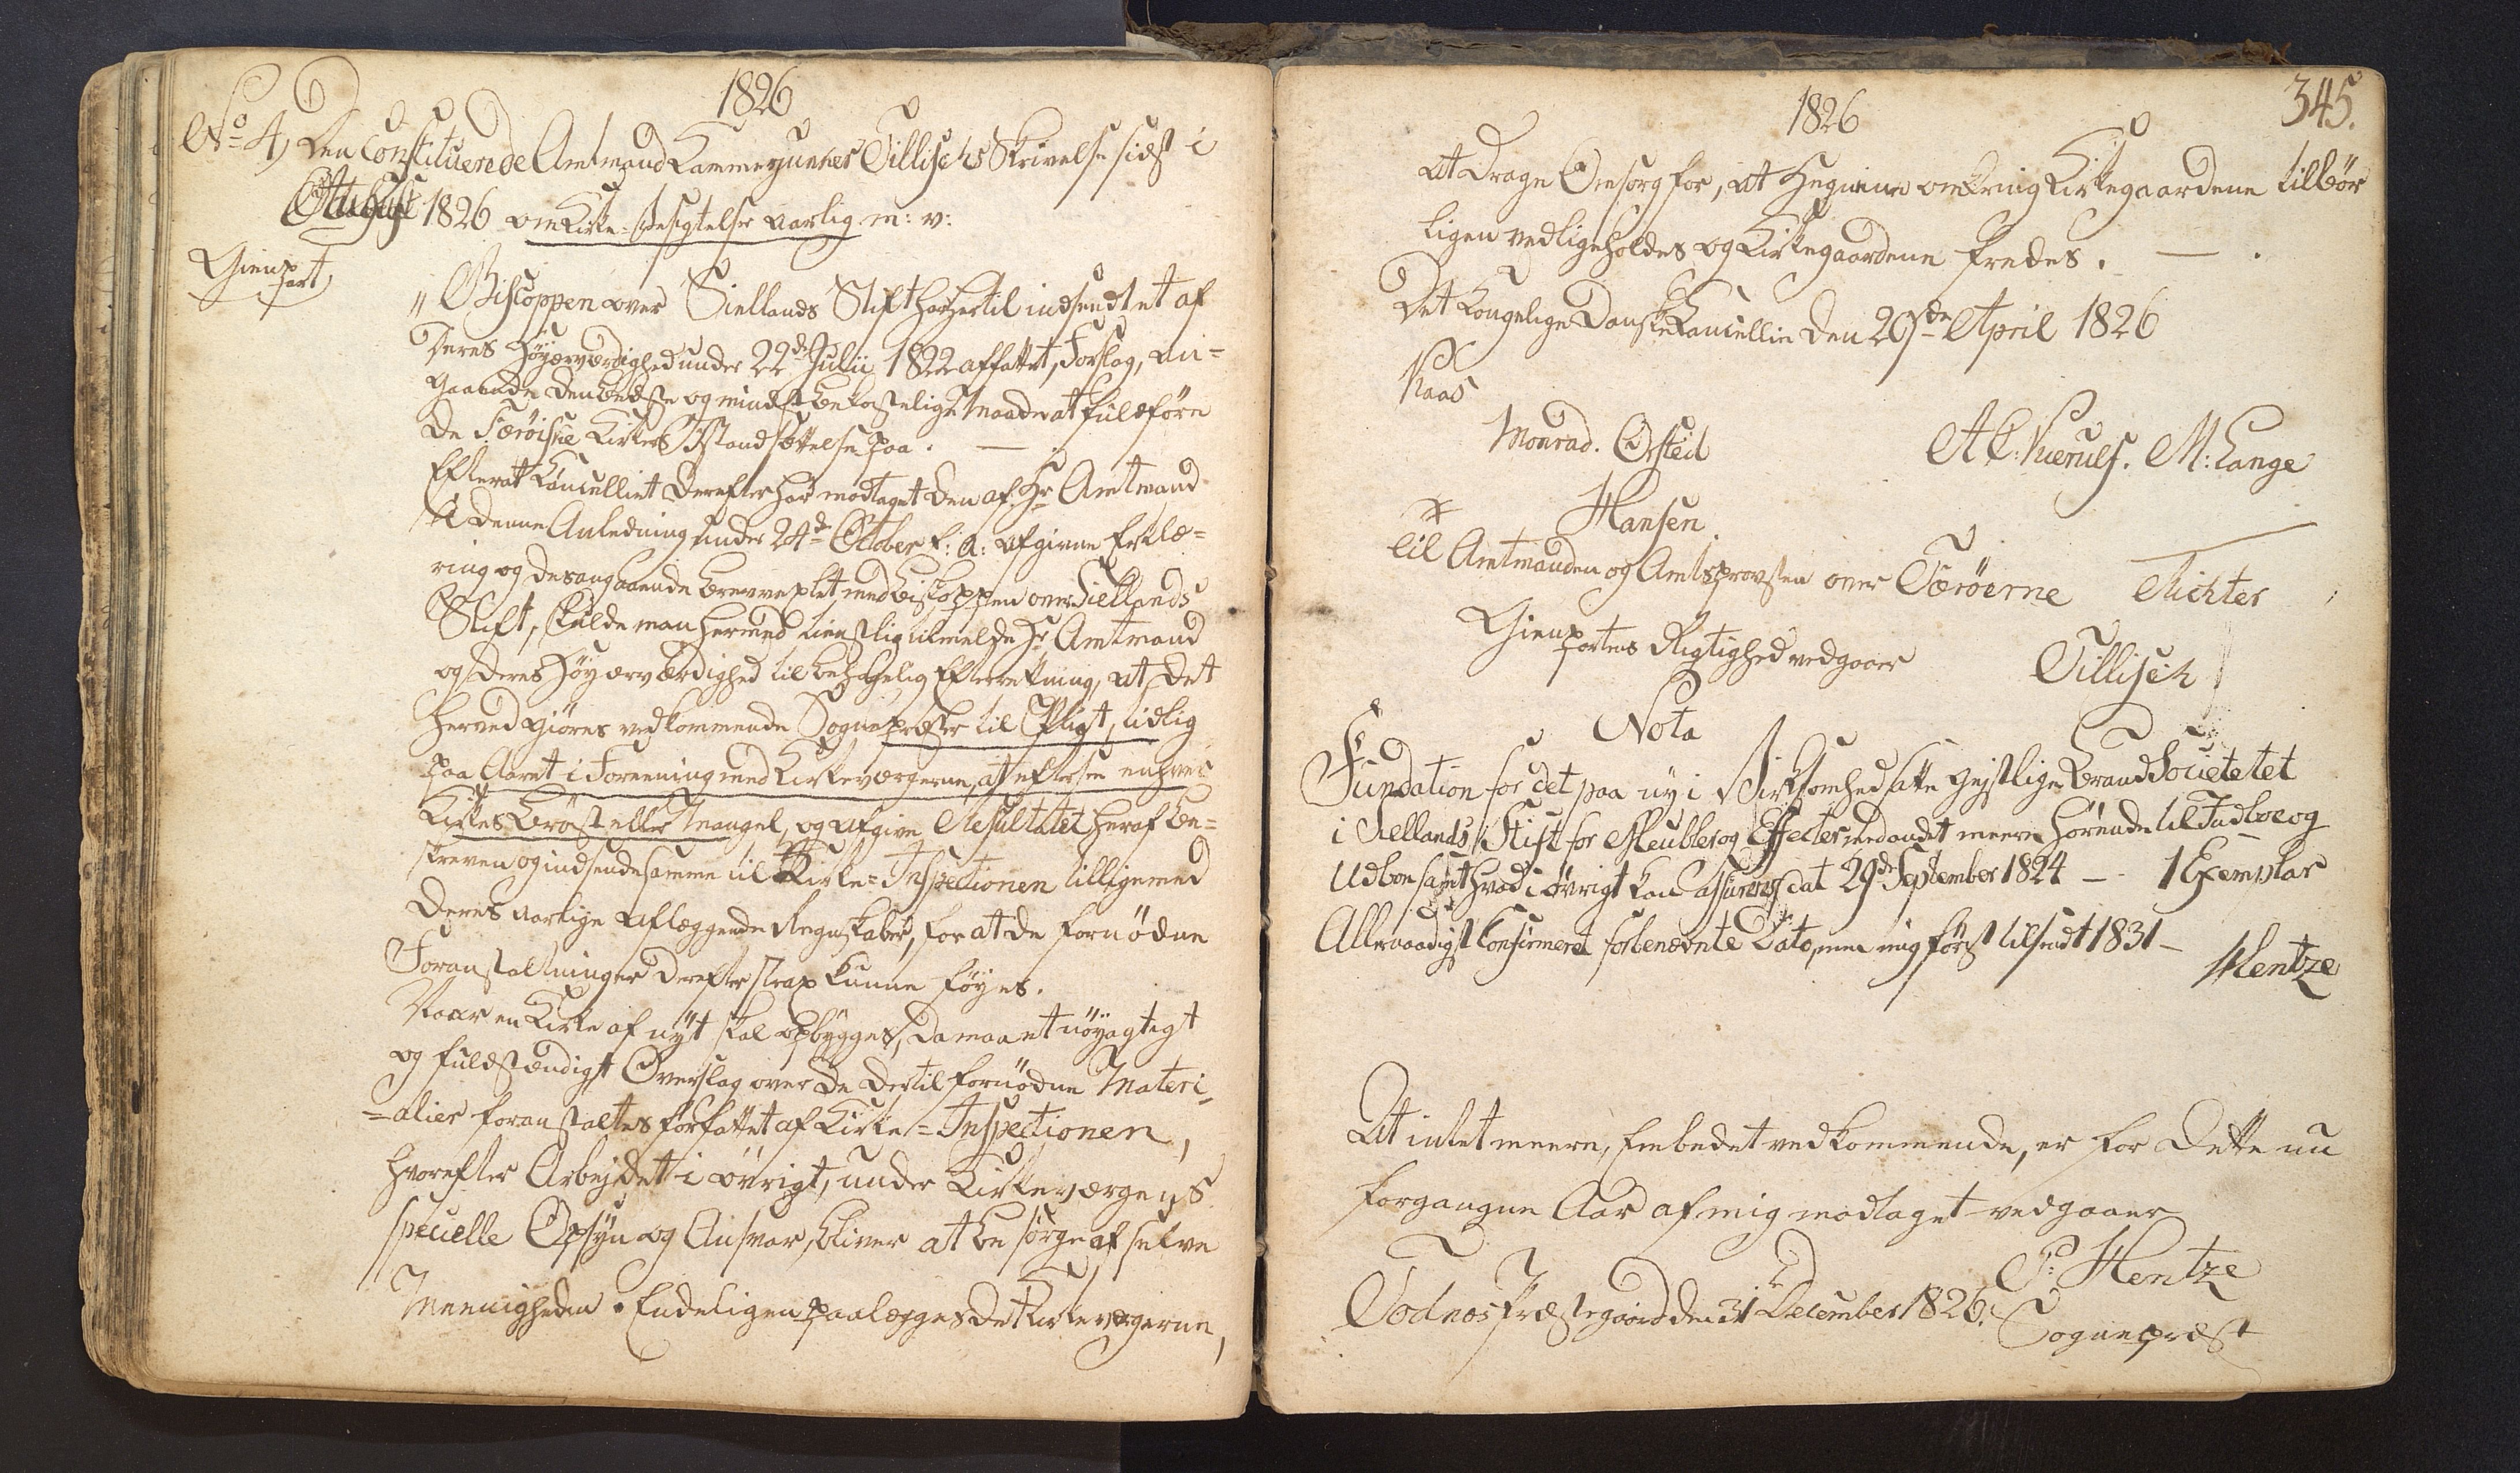 1826
No 4, Den Constituerede Amtmand Kammerjunker Tillisch's Skrivelse sidst i
August 1826 om Kirke-besigtelse aarlig m: v:
Gienpart
„Biscoppen over Siellands Stift har hertil indsendt et af
Deres Høyærværdighed under 22de Julii 1822 affattet, Forslag, an-
gaaende den bedste og mindst bekostelige Maade at fuldføre
de Færöiske Kirkers Istandsættelse paa. —
Efterat Cancelliet derefter har modtaget den af Hr Amtmand
i denne Anledning under 24de October f: A: afgivne Erklæ-
ring og desangaaende brevvexlet med Biskoppen over Siellands
Stift, skulde man herved tienstlig tilmelde Hr Amtmand
og Deres Høyærværdighed til behagelig Efterretning, at det
herved giøres vedkommende Sognepræster til Pligt, tidlig
paa Aaret i Foreening med Kirkeværgerne, at eftersee enhver
Kirkes Bröst eller Mangel, og afgive Resultatet heraf be-
skreven og indsende samme til Kirke-Inspectionen tilligemed
Deres aarlige aflæggende Regnskaber, for at de fornødne
Foranstaltninger derefter strax kunne føyes.
Naar en Kirke af nyt skal opbygges, da maa et nöyagtigt
og fuldstændigt Overslag over de dertil fornødne Materi-
=alier foranstaltes forfattet af Kirke-Inspectionen,
hvorefter Arbeydet i øvrigt, under Kirkeværgens
specielle Opsyn og Ansvar, bliver at besørge af selve
Meenigheden. Endeligen paalægges det Kirkeværgerne,
1826
345.
at drage Omsorg for, at Hegnene omkring Kirkegaardene tilbør
ligen vedligeholdes og Kirkegaardene fredes. —
Det Kongelige Danske Cancellie den 29de April 1826
Kaas
Monrad. Ørsted
A C: Kierulf. M: Lange
Hansen
Til Amtmanden og Amtsprovsten over Færöerne
Richter
Gienpartens Rigtighed vedgaaer
Tillisch
Nota
Fundation for det paa ny i Virksomhed satte gejstlige Brand Societetet
i Siellands Stift for Meubler og Effecter med andet meere hørende til Indboe og
Udboe samt hvad i øvrigt kan assureres dat 29de September 1824 — 1 Exemplar
Allernaadigst Confirmeret forbenævnte Dato, men mig först tilsendt 1831 —
Hentze
At intet meere, Embedet vedkommende, er for dette nu
forgangne Aar af mig modtaget vedgaaer
P: Hentze
Qvalnæs Præstegaard den 31 December 1826.
Sognepræst